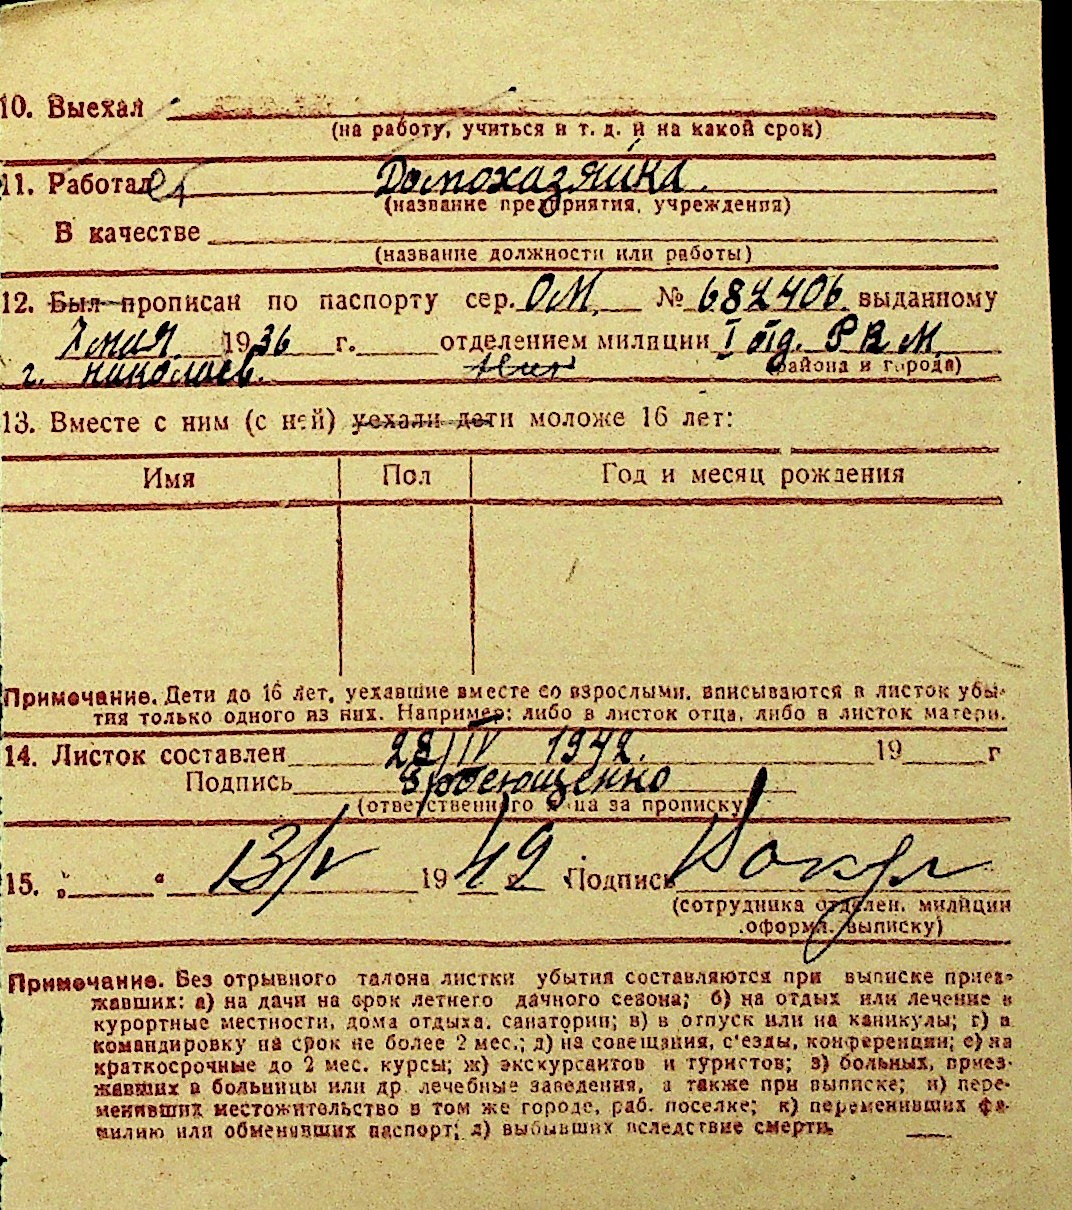 10. Выехал
(на работу, учиться и т. д. и на какой срок)
11. Работает Домохазяйка.
(название предприятия, учреждения)
В качестве
(название должности или работы)
12. Был прописан по паспорту сер. ОМ. № 682406 выданному
7 мая 1936 г. отделением милиции I отд. РКМ
г. Николаев. (района и города)
13. Вместе с ним (с ней) уехали дети моложе 16 лет:
Имя Пол Год и месяц рождения
Примечание. Дети до 16 лет, уехавшие вместе со взрослыми, вписываются в листок убы-
тия только одного из них. Например: либо в листок отца, либо в листок матери.
14. Листок составлен 28/IV 1942. 19 г
Подпись
(ответственного лица за прописку)
15. „ “ 13/V 1942 г. Подпись
(сотрудника отделен. милиции
оформл. выписку)
Примечание. Без отрывного талона листки убытия составляются при выписке приез-
жавших: а) на дачи на срок летнего дачного сезона; б) на отдых или лечение в
курортные местности, дома отдыха, санатории; в) в отпуск или на каникулы; г) в
командировку на срок не более 2 мес.; д) на совещания, с'езды, конференции; е) на
краткосрочные до 2 мес. курсы; ж) экскурсантов и туристов; з) больных, приез-
жавших в больницы или др. лечебные заведения, а также при выписке; и) пере-
менивших местожительство в том же городе, раб. поселке; к) переменивших фа-
милию или обменявших паспорт; л) выбывших вследствие смерти.